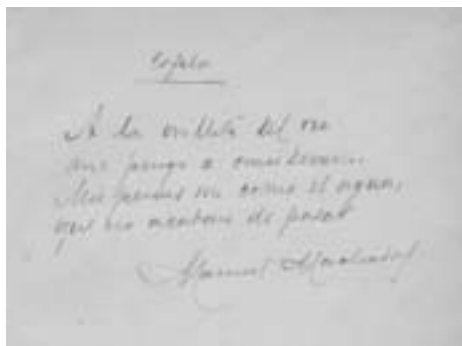 Copla
A la orillita del río
me pongo a considerar:
Mis penas son como el agua,
que no acaban de pasar
Manuel Machado